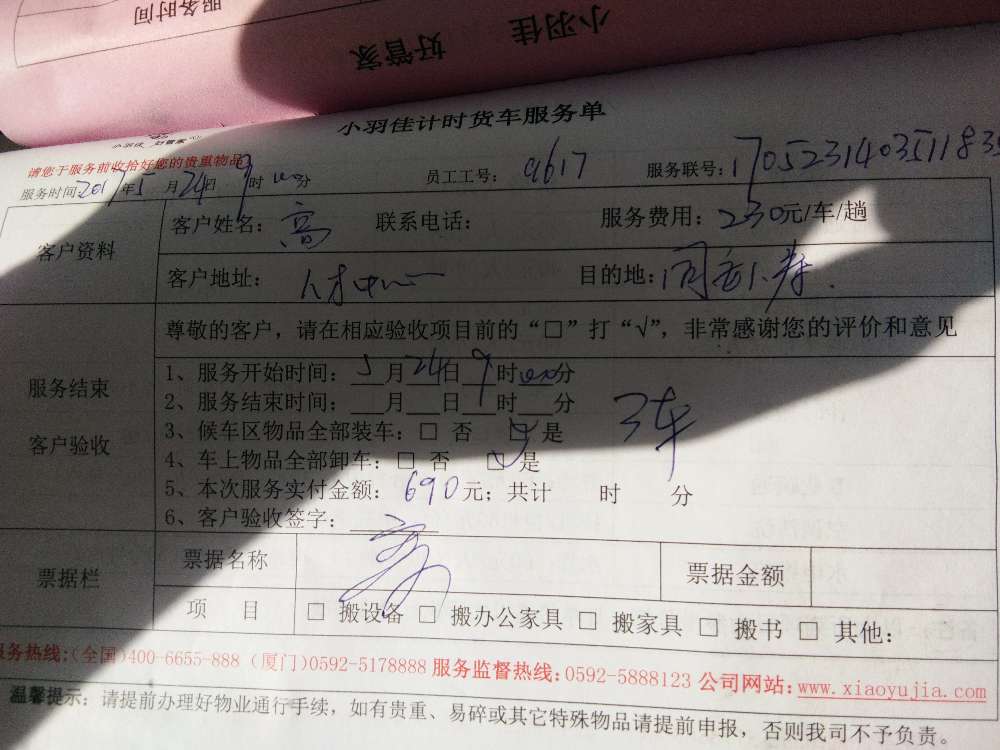 服务时间
小羽佳 好管家
小羽佳计时货车服务单
小羽佳 好管家
请您于服务前收拾好您的贵重物品
服务时间:2017年5月24日9时00分 员工工号: 9617 服务联号:170523140351183
客户资料
客户姓名: 高 联系电话: 服务费用: 230元/车/趟
客户地址: 人才中心 目的地:同安
尊敬的客户，请在相应验收项目前的“□”打“√”，非常感谢您的评价和意见
服务结束
客户验收
1、服务开始时间: 5月24日9时00分
2、服务结束时间: 月 日 时 分
3、候车区物品全部装车: □ 否 □ 是
3车
4、车上物品全部卸车: □ 否 □ 是
5、本次服务实付金额: 690元; 共计 时 分
6、客户验收签字:
票据栏
票据名称 票据金额
项 目 □ 搬设备 □ 搬办公家具 □ 搬家具 □ 搬书 □ 其他:
服务热线:(全国)400-6655-888 (厦门)0592-5178888 服务监督热线:0592-5888123 公司网站:www.xiaoyujia.com
温馨提示: 请提前办理好物业通行手续，如有贵重、易碎或其它特殊物品请提前申报，否则我司不予负责。